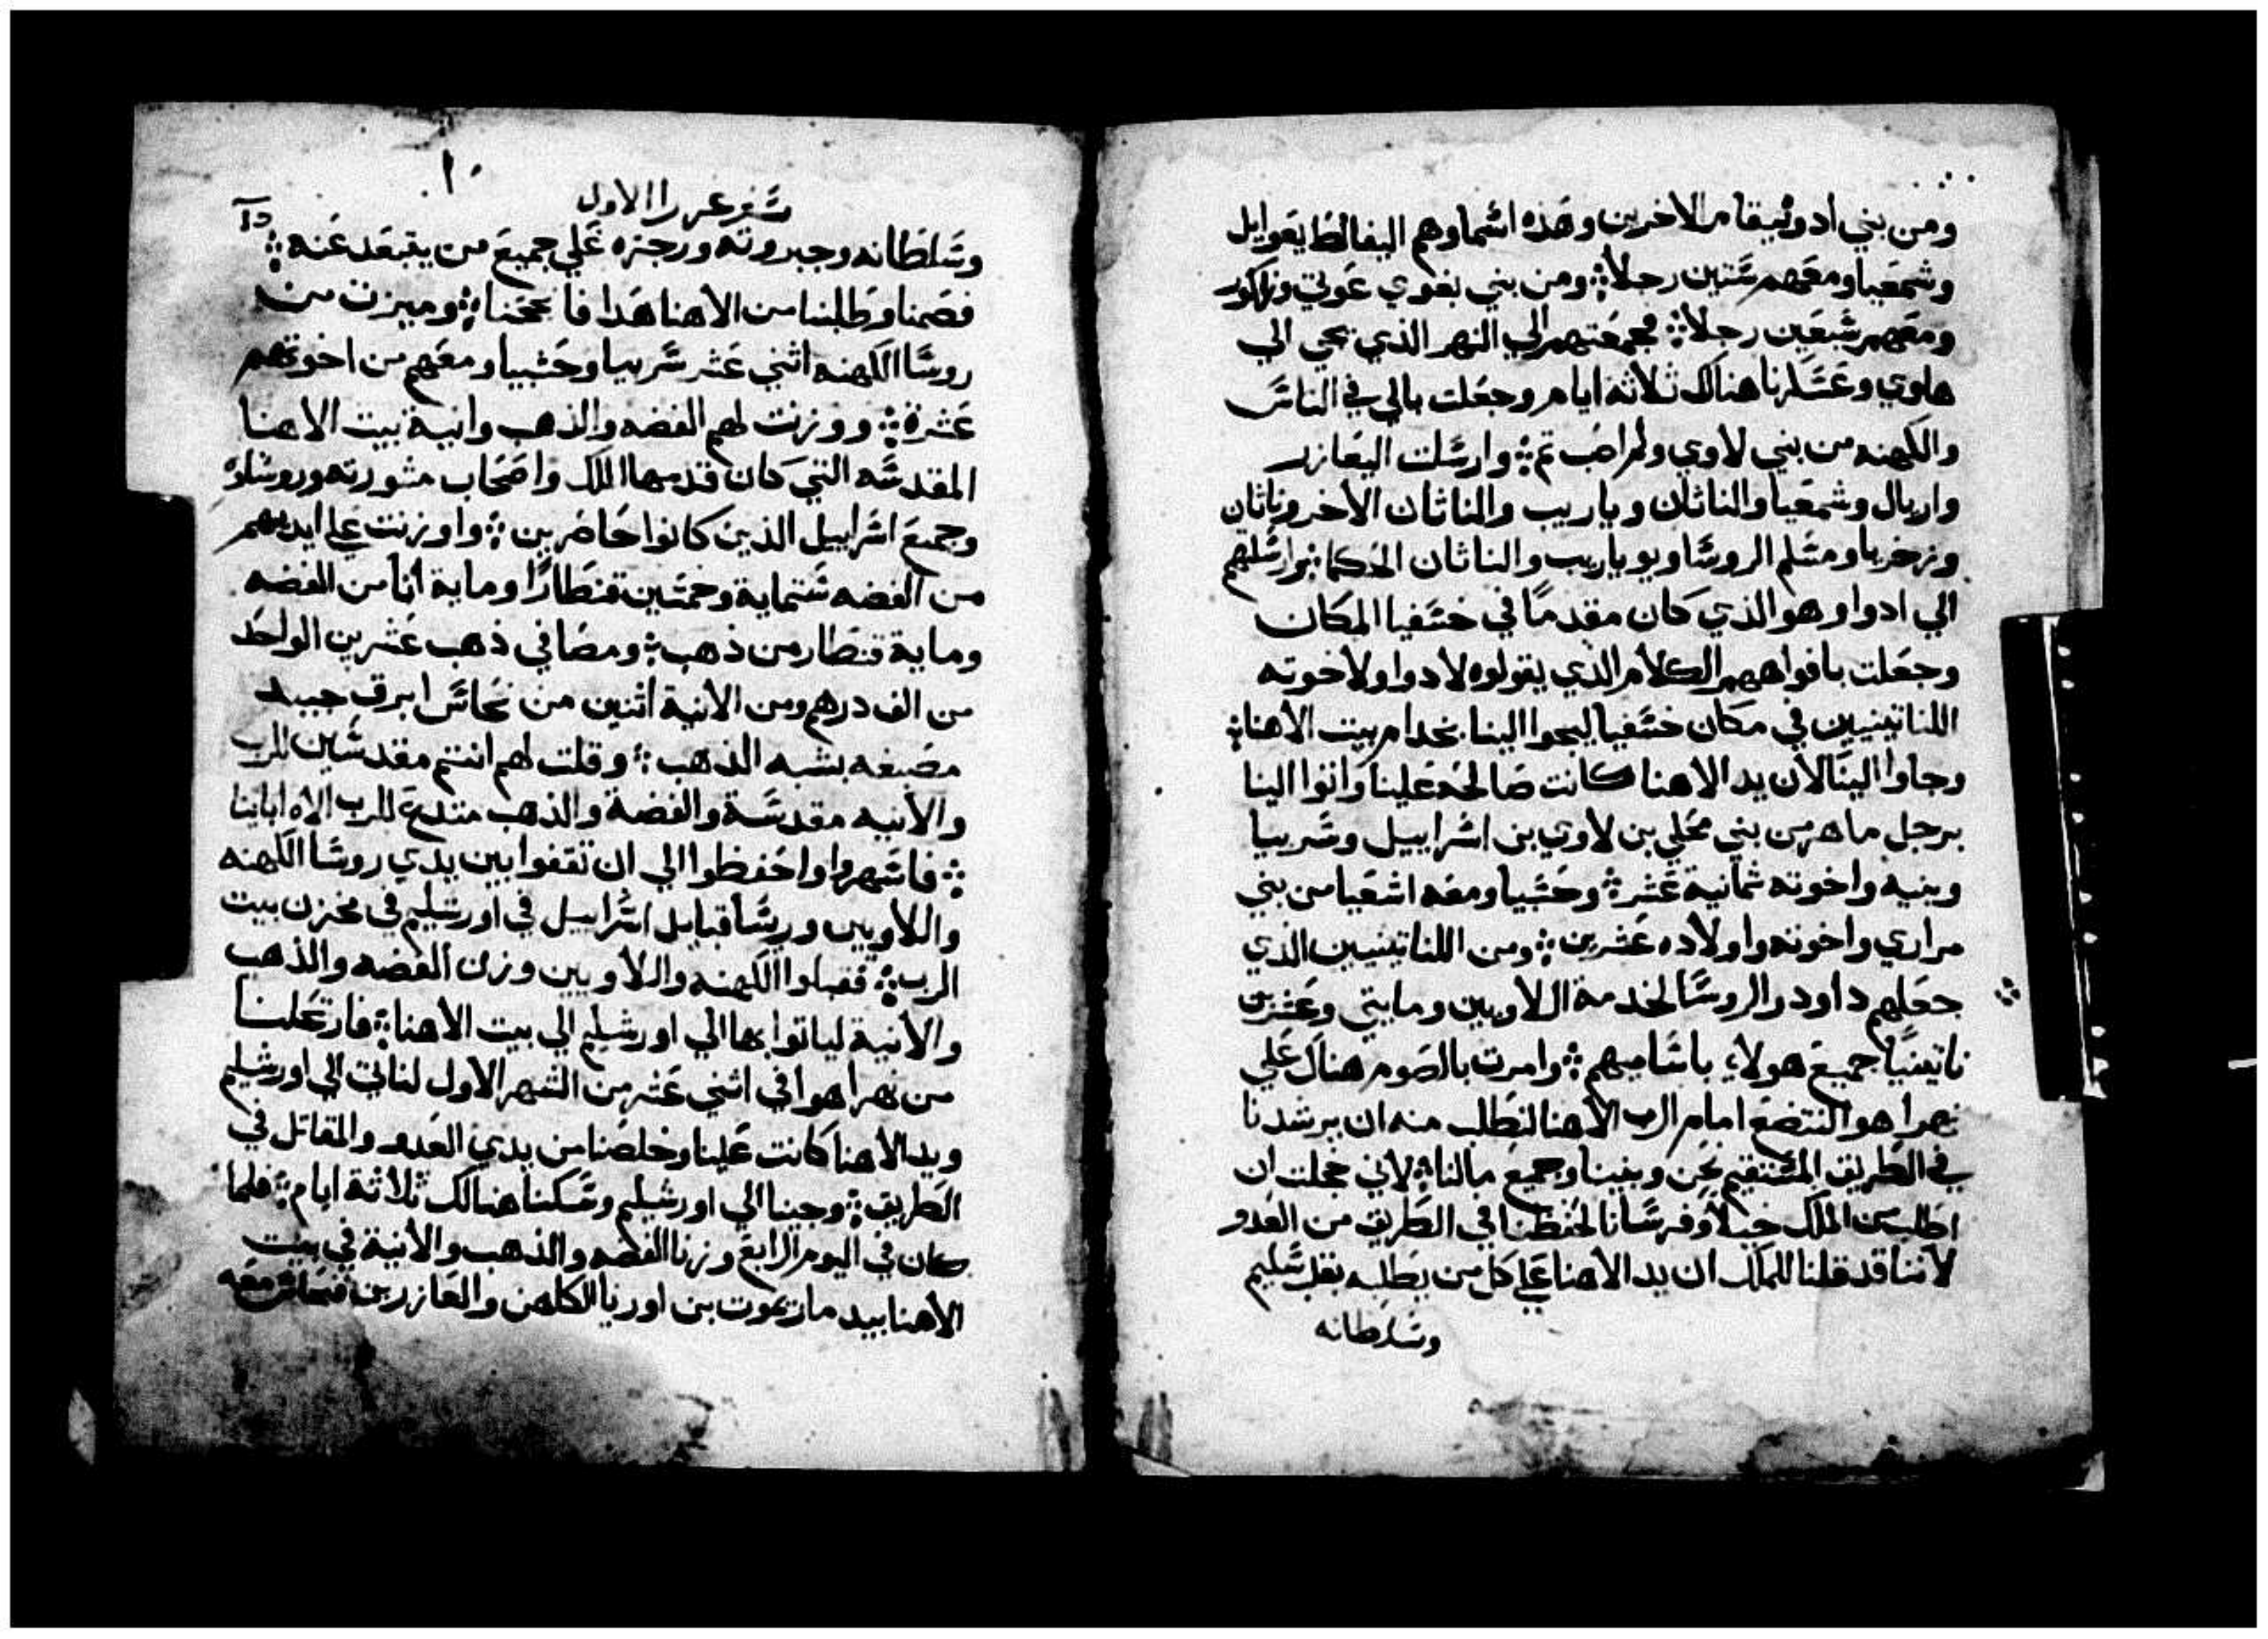 ومن بني ادونيقام الاخرين وهذه اسماوهم اليفالط يعوايل
وشمعيا ومعهم ستين رجلا ومن بني بغوي عوتي وزاكور
ومعهم سبعين رجلا فجمعتهم الي النهر الذي يجي الي
هاوي وعسكرنا هناك ثلاثة ايام وجعلت بالي في الناس
والكهنه من بني لاوي ولم اصب تم وارسلت اليعازر
واريال وشمعيا والناثان وياريب والناثان الاخر وناثان
وزخريا ومشلم الروسا ويوياريب والناثان الحكما وارسلهم
الي ادوا وهو الذي كان مقدما في خسفيا المكان
وجعلت بافواههم الكلام الذي يقولوه لادوا ولاخوته
اللناتينيين في مكان خسفيا ليجوا الينا بخدام بيت الاهنا
وجاوا الينا لان يد الاهنا كانت صالحه علينا واتوا الينا
برجل ماهر من بني محلي بن لاوي بن اسراييل وشربيا
وبنيه واخوته ثمانية عشر وحشبيا ومعه اشعيا من بني
مراري واخوته واولاده عشرين ومن اللناتينيين الذي
جعلهم داود والروسا لخدمة اللاويين ومايتي وعشرين
ناتينيا جميع هولاء باساميهم وامرت بالصوم هناك علي
نهرا هوا لنتضع امام الرب الاهنا لنطلب منه ان يرشدنا
في الطريق المستقيم نحن وبنينا وجميع مالنا لاني خجلت ان
اطلب من الملك خيلا وفرسانا لحفظنا في الطريق من العدو
لاننا قد قلنا للملك ان يد الاهنا علي كل من يطلبه بقلب سليم
وسلطانه
١٠
سفر عزرا الاول
وسلطانه وجبروته ورجزه علي جميع من يتبعد عنه
فصمنا وطلبنا من الاهنا هدا فانجحنا وميزت من
روسا الكهنه اثني عشر شربيا وحشبيا ومعهم من اخوتهم
عشرة ووزنت لهم الفضه والذهب وانية بيت الاهنا
المقدسه التي كان قدمها الملك واصحاب مشورته وروساوه
وجميع اسراييل الذين كانوا حاضرين واوزنت علي ايديهم
من الفضه ستماية وخمسين قنطارا وماية انا من الفضه
وماية قنطار من ذهب ومصافي ذهب عشرين الواحد
من الف درهم ومن الانية اثنين من نحاس ابرق جبيد
مصبغه بشبه الذهب وقلت لهم انتم مقدسين للرب
والانيه مقدسة والفضة والذهب متدع للرب الاه اباينا
فاسهروا واحفظوا الي ان تقفوا بين يدي روسا الكهنه
واللاويين وريسا قبايل اسراييل في اورشليم في مخزن بيت
الرب فقبلوا الكهنه واللاويين وزن الفضه والذهب
والانية لياتوا بها الي اورشليم الي بيت الاهنا فارتحلنا
من نهرا هوا في اثني عشر من الشهر الاول لناتي الي اورشليم
ويد الاهنا كانت علينا وخلصنا من يدي العدو والمقاتل في
الطريق وجينا الي اورشليم وسكنا هنالك ثلاثة ايام فلما
كان في اليوم الرابع وزنا الفضه والذهب والانية في بيت
الاهنا بيد مازيموت بن اوريا الكاهن والعازر بن فنحاس معه